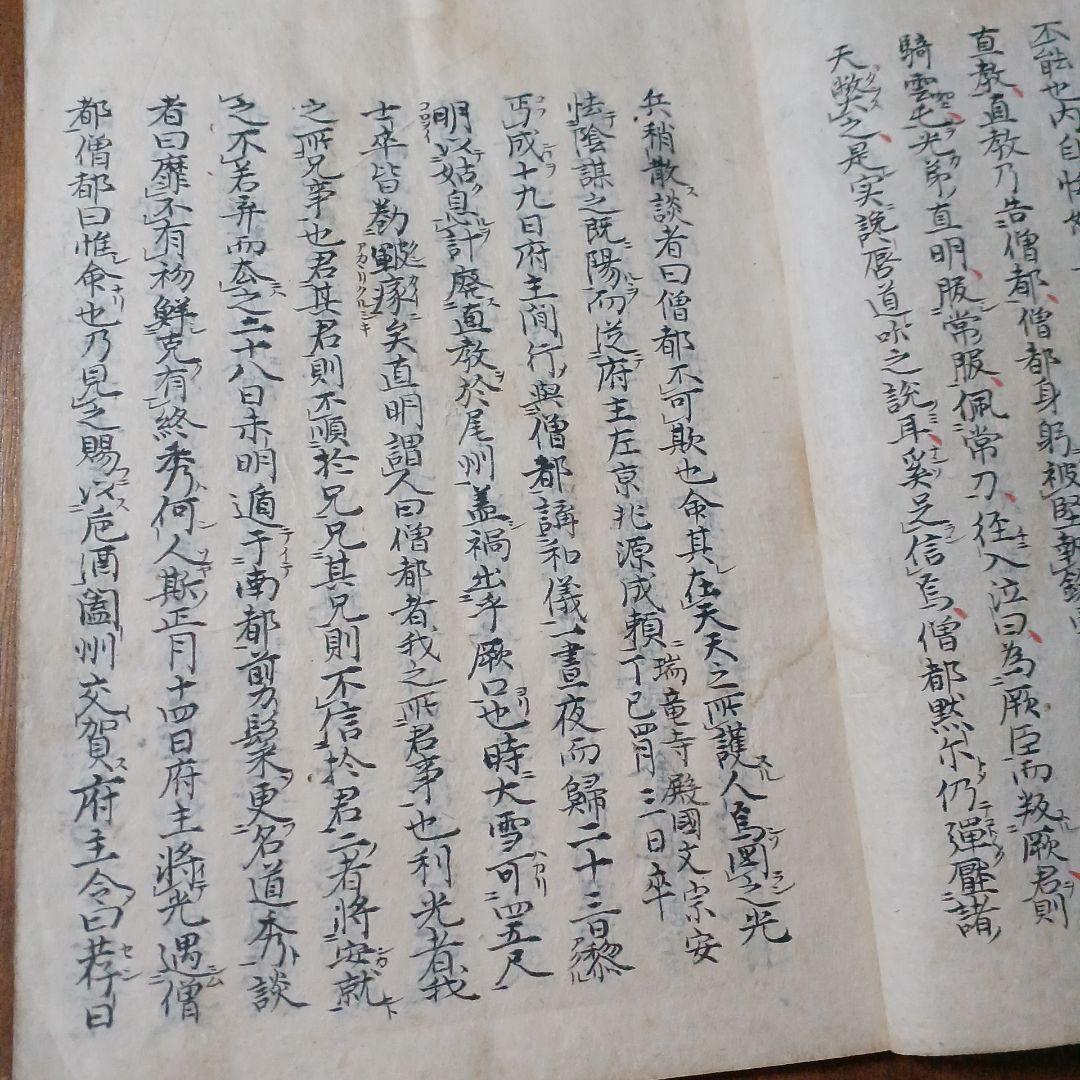 不能也内自
直教直教乃告僧都僧都身躬被堅執
騎雲毛光弟直明服常服佩常刀径入泣曰為厥臣而叛厥君則
天斃之是実説唇道听之説耳奚足信焉僧都黙尓仍弾壓諸
兵稍散談者曰僧都不可欺也命其在天天之所護人焉図之光
怯陰謀之既陽而従府主左京兆源成頼瑞竜寺殿國文宗安丁巳四月三日卒
丐成十九日府主間行與僧都講和儀一晝夜而歸二十三日黎
明以姑息計廃直教於尾州盖禍出乎厥口也時大雪可四五尺
士卒皆皸瘃矣直明謂人曰僧都者我之所君事也利光者我
之所兄事也君其君則不順於兄兄其兄則不信於君二者將安就
之不若弃而去之二十八日未明遁于南都剪髪更名道秀談
者曰靡不有初鮮克有終秀何人斯正月十四日府主將光遇僧
都僧都曰惟命也乃見之賜以卮酒闔州交賀府主令曰若日